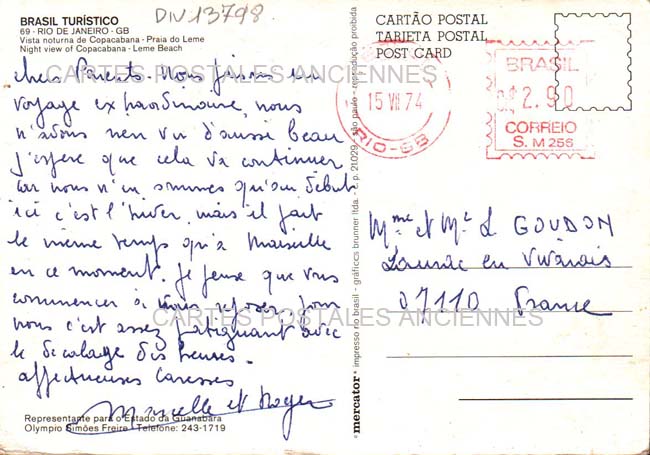 BRASIL TURÍSTICO
69 - RIO DE JANEIRO - GB
Vista noturna de Copacabana - Praia do Leme
Night view of Copacabana - Leme Beach
DIV 13798
chers Parents. Nous faisons un
voyage extraordinaire, nous
n'avons rien vu d'aussi beau
j'espère que cela va continuer
car nous n'en sommes qu'au début
ici c'est l'hiver, mais il fait
le même temps qu'à Marseille
en ce moment. Je pense que vous
commencer à vous reposer, pour
nous c'est assez fatiguant avec
le décalage des heures.
affectueuses caresses
Marcelle et Roger
Representante para o Estado da Guanabara
Olympio Simões Freire - Telefone: 243-1719
mercator® impresso no brasil - gráficcs brunner ltda. - c. p. 21029 - são paulo - reprodução proibida
CARTÃO POSTAL
TARJETA POSTAL
POST CARD
15 VII 74
RIO-GB
BRASIL
2.90
CORREIO
S. M 256
Mme et Mr L GOUDON
Lanas en Vivarais
07110 France
CARTES POSTALES ANCIENNES
CARTES POSTALES ANCIENNES